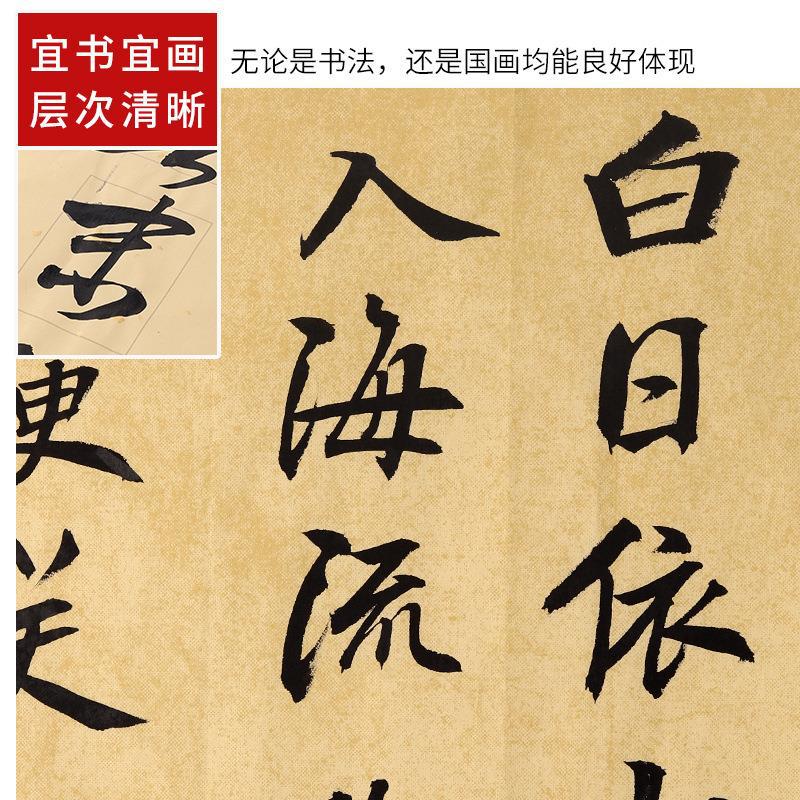 宜书宜画
层次清晰
无论是书法，还是国画均能良好体现
白日依
入海流
更